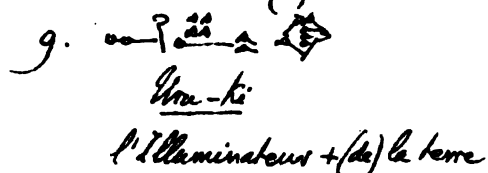 9.
Uru-ki
l'Illuminateur + (de) la terre